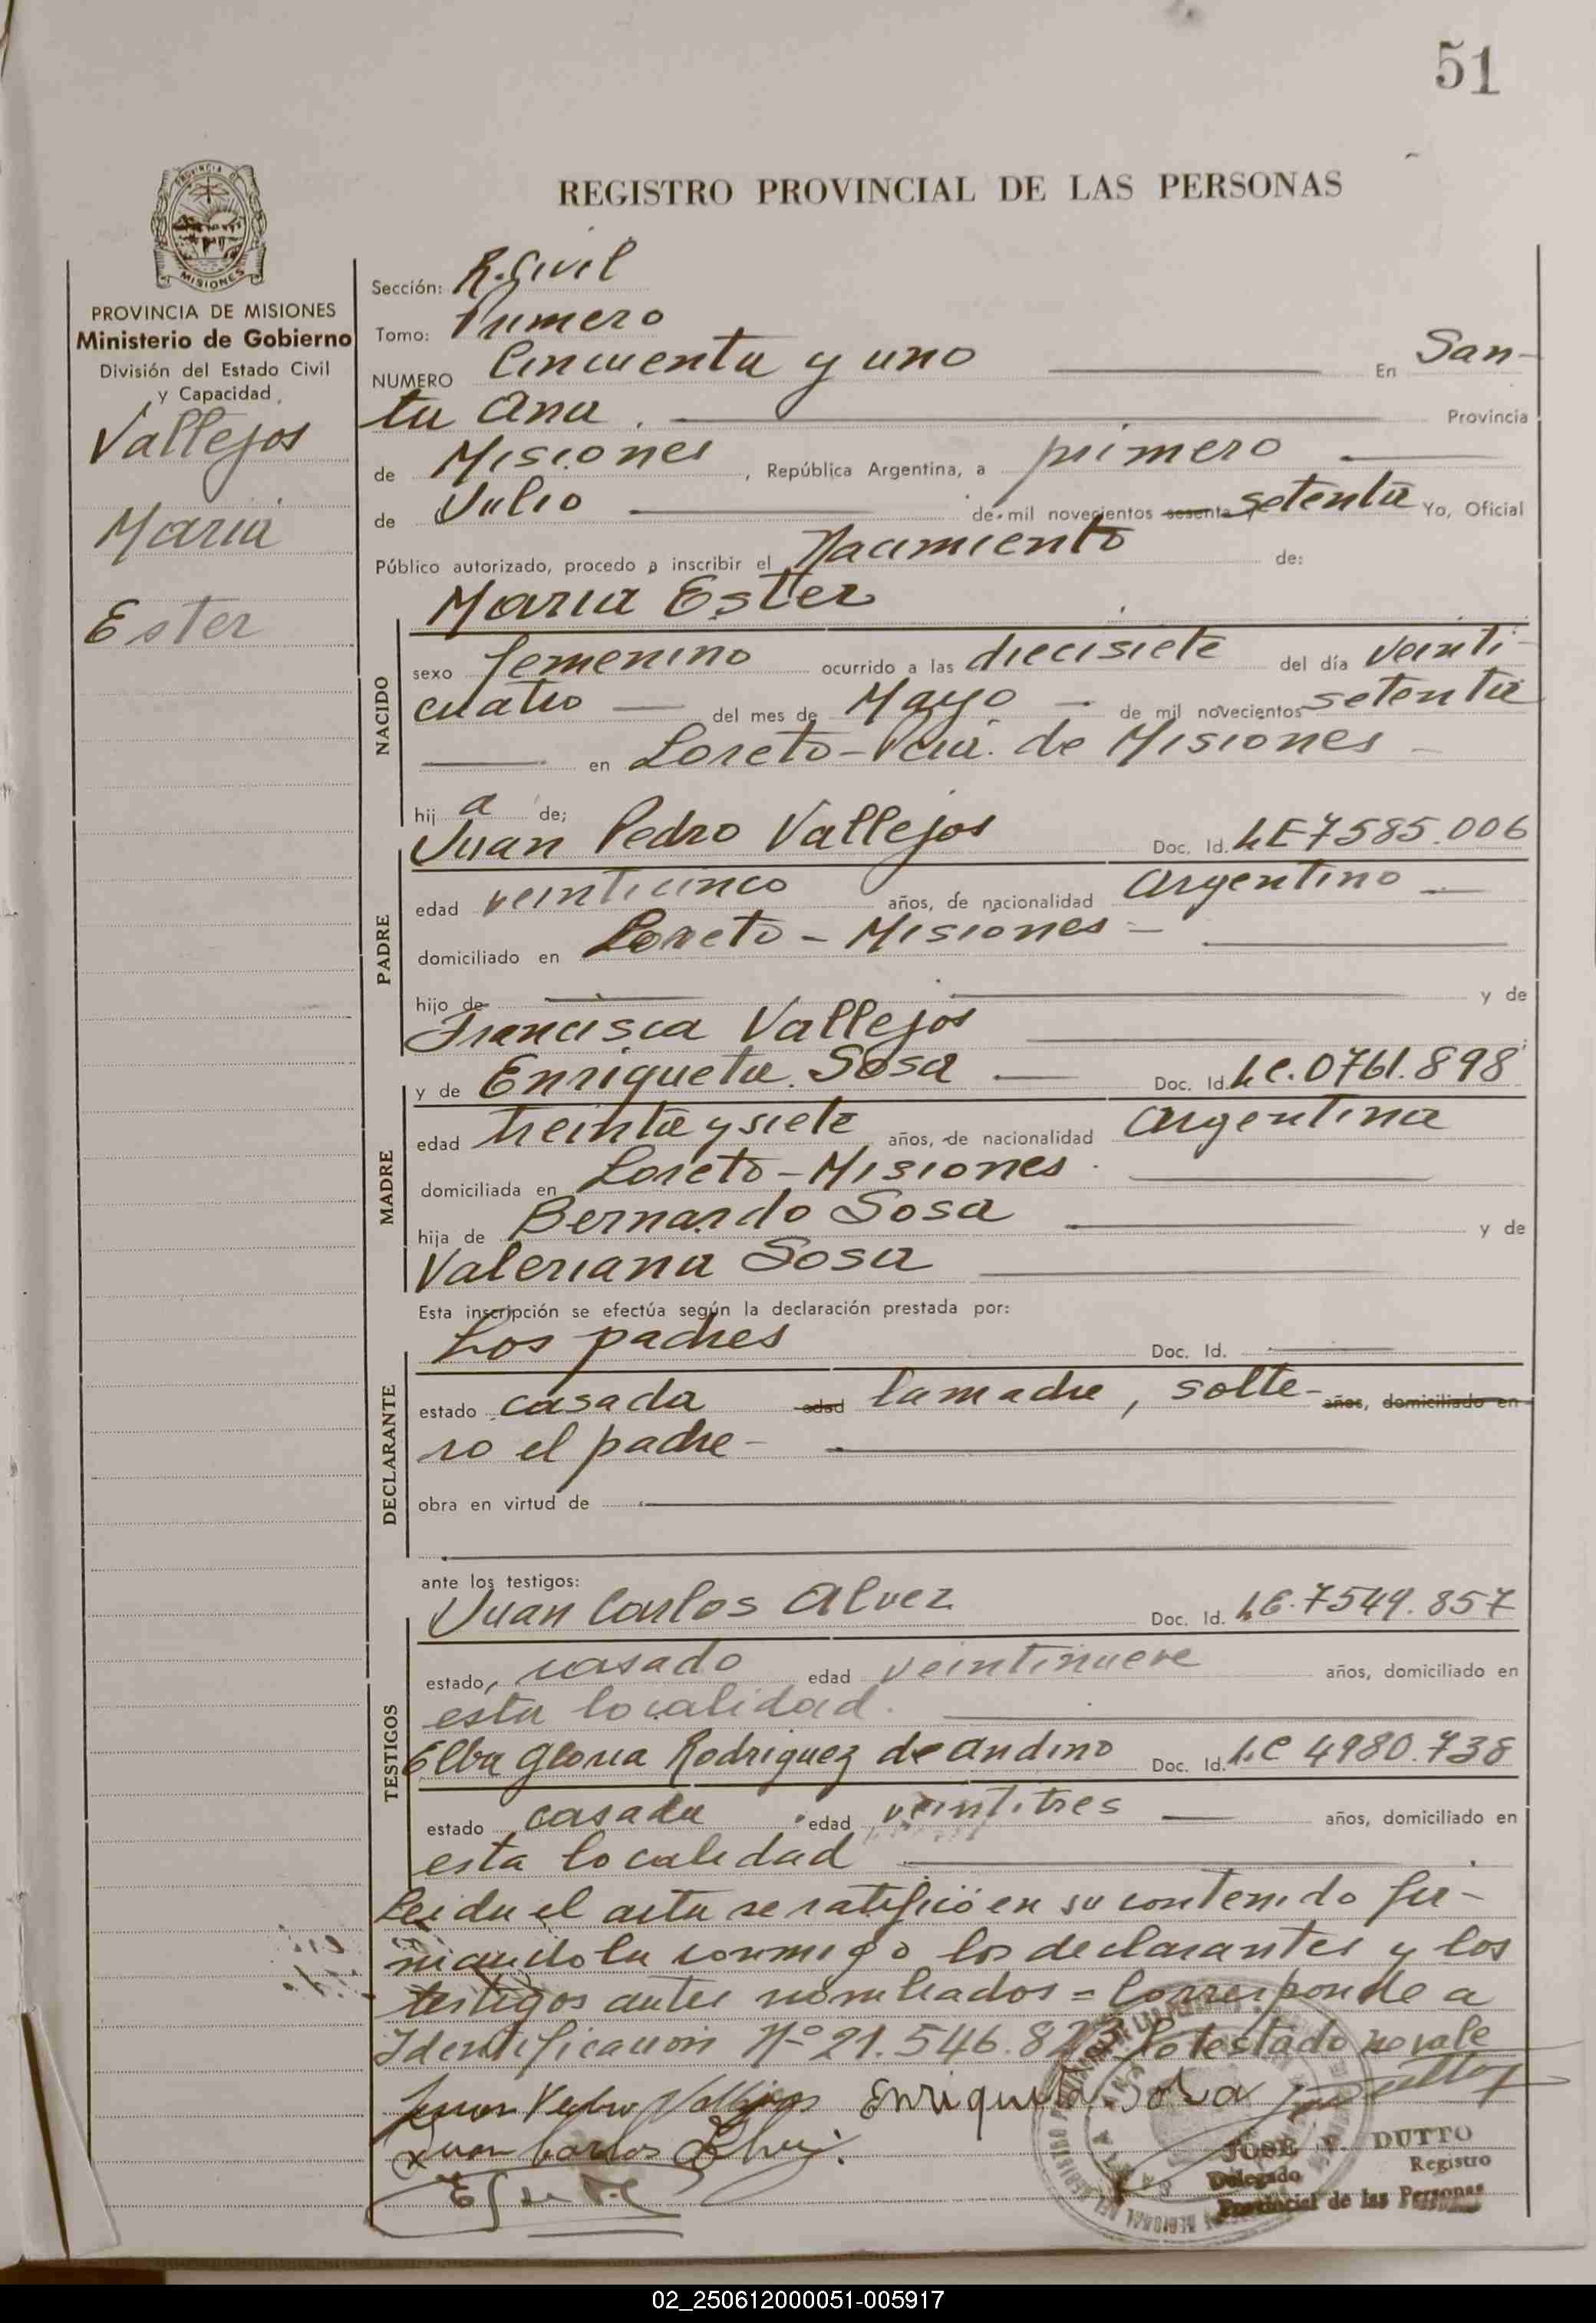 51
REGISTRO PROVINCIAL DE LAS PERSONAS
MISIONES
PROVINCIA DE MISIONES
Ministerio de Gobierno
División del Estado Civil
y Capacidad
Vallejos
Maria
Ester
Sección: R. Civil
Tomo: Primero
NUMERO Cincuenta y uno En San-
ta Ana. Provincia
de Misiones, República Argentina, a primero
de Julio de mil novecientos sesenta y setenta Yo, Oficial
Público autorizado, procedo a inscribir el Nacimiento de:
Maria Ester
NACIDO
sexo femenino ocurrido a las diecisiete del día veinti-
cuatro del mes de Mayo de mil novecientos setenta
en Loreto - Pcia. de Misiones
hij a de;
PADRE
Juan Pedro Vallejos Doc. Id. LE 7585.006
edad veinticinco años, de nacionalidad argentino
domiciliado en Loreto - Misiones
hijo de y de
Francisca Vallejos
MADRE
y de Enriqueta Sosa Doc. Id. L.C. 0761.898
edad treinta y siete años, de nacionalidad argentina
domiciliada en Loreto - Misiones
hija de Bernardo Sosa y de
Valeriana Sosa
Esta inscripción se efectúa según la declaración prestada por:
DECLARANTE
Los padres Doc. Id.
estado casada edad la madre, solte- años, domiciliado en
ro el padre
obra en virtud de
ante los testigos:
TESTIGOS
Juan Carlos Alvez Doc. Id. L.E. 7549.857
estado casado edad veintinueve años, domiciliado en
esta localidad.
Elba Gloria Rodriguez de Andino Doc. Id. L.C 4980.738
estado casada edad veintitres años, domiciliado en
esta localidad
Leida el acta se ratificó en su contenido fir-
mandola conmigo los declarantes y los
testigos antes nombrados = Corresponde a
Identificacion Nº 21.546.823 Lo testado no vale
Juan Pedro Vallejos Enriqueta Sosa
Juan Carlos
JOSE DUTTO
Delegado Registro
Provincial de las Personas
02_250612000051-005917